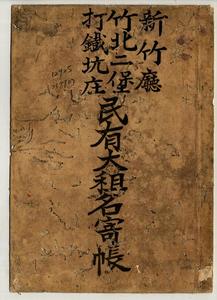 新竹廳
竹北二堡
打鐵坑庄
民有大租名寄帳